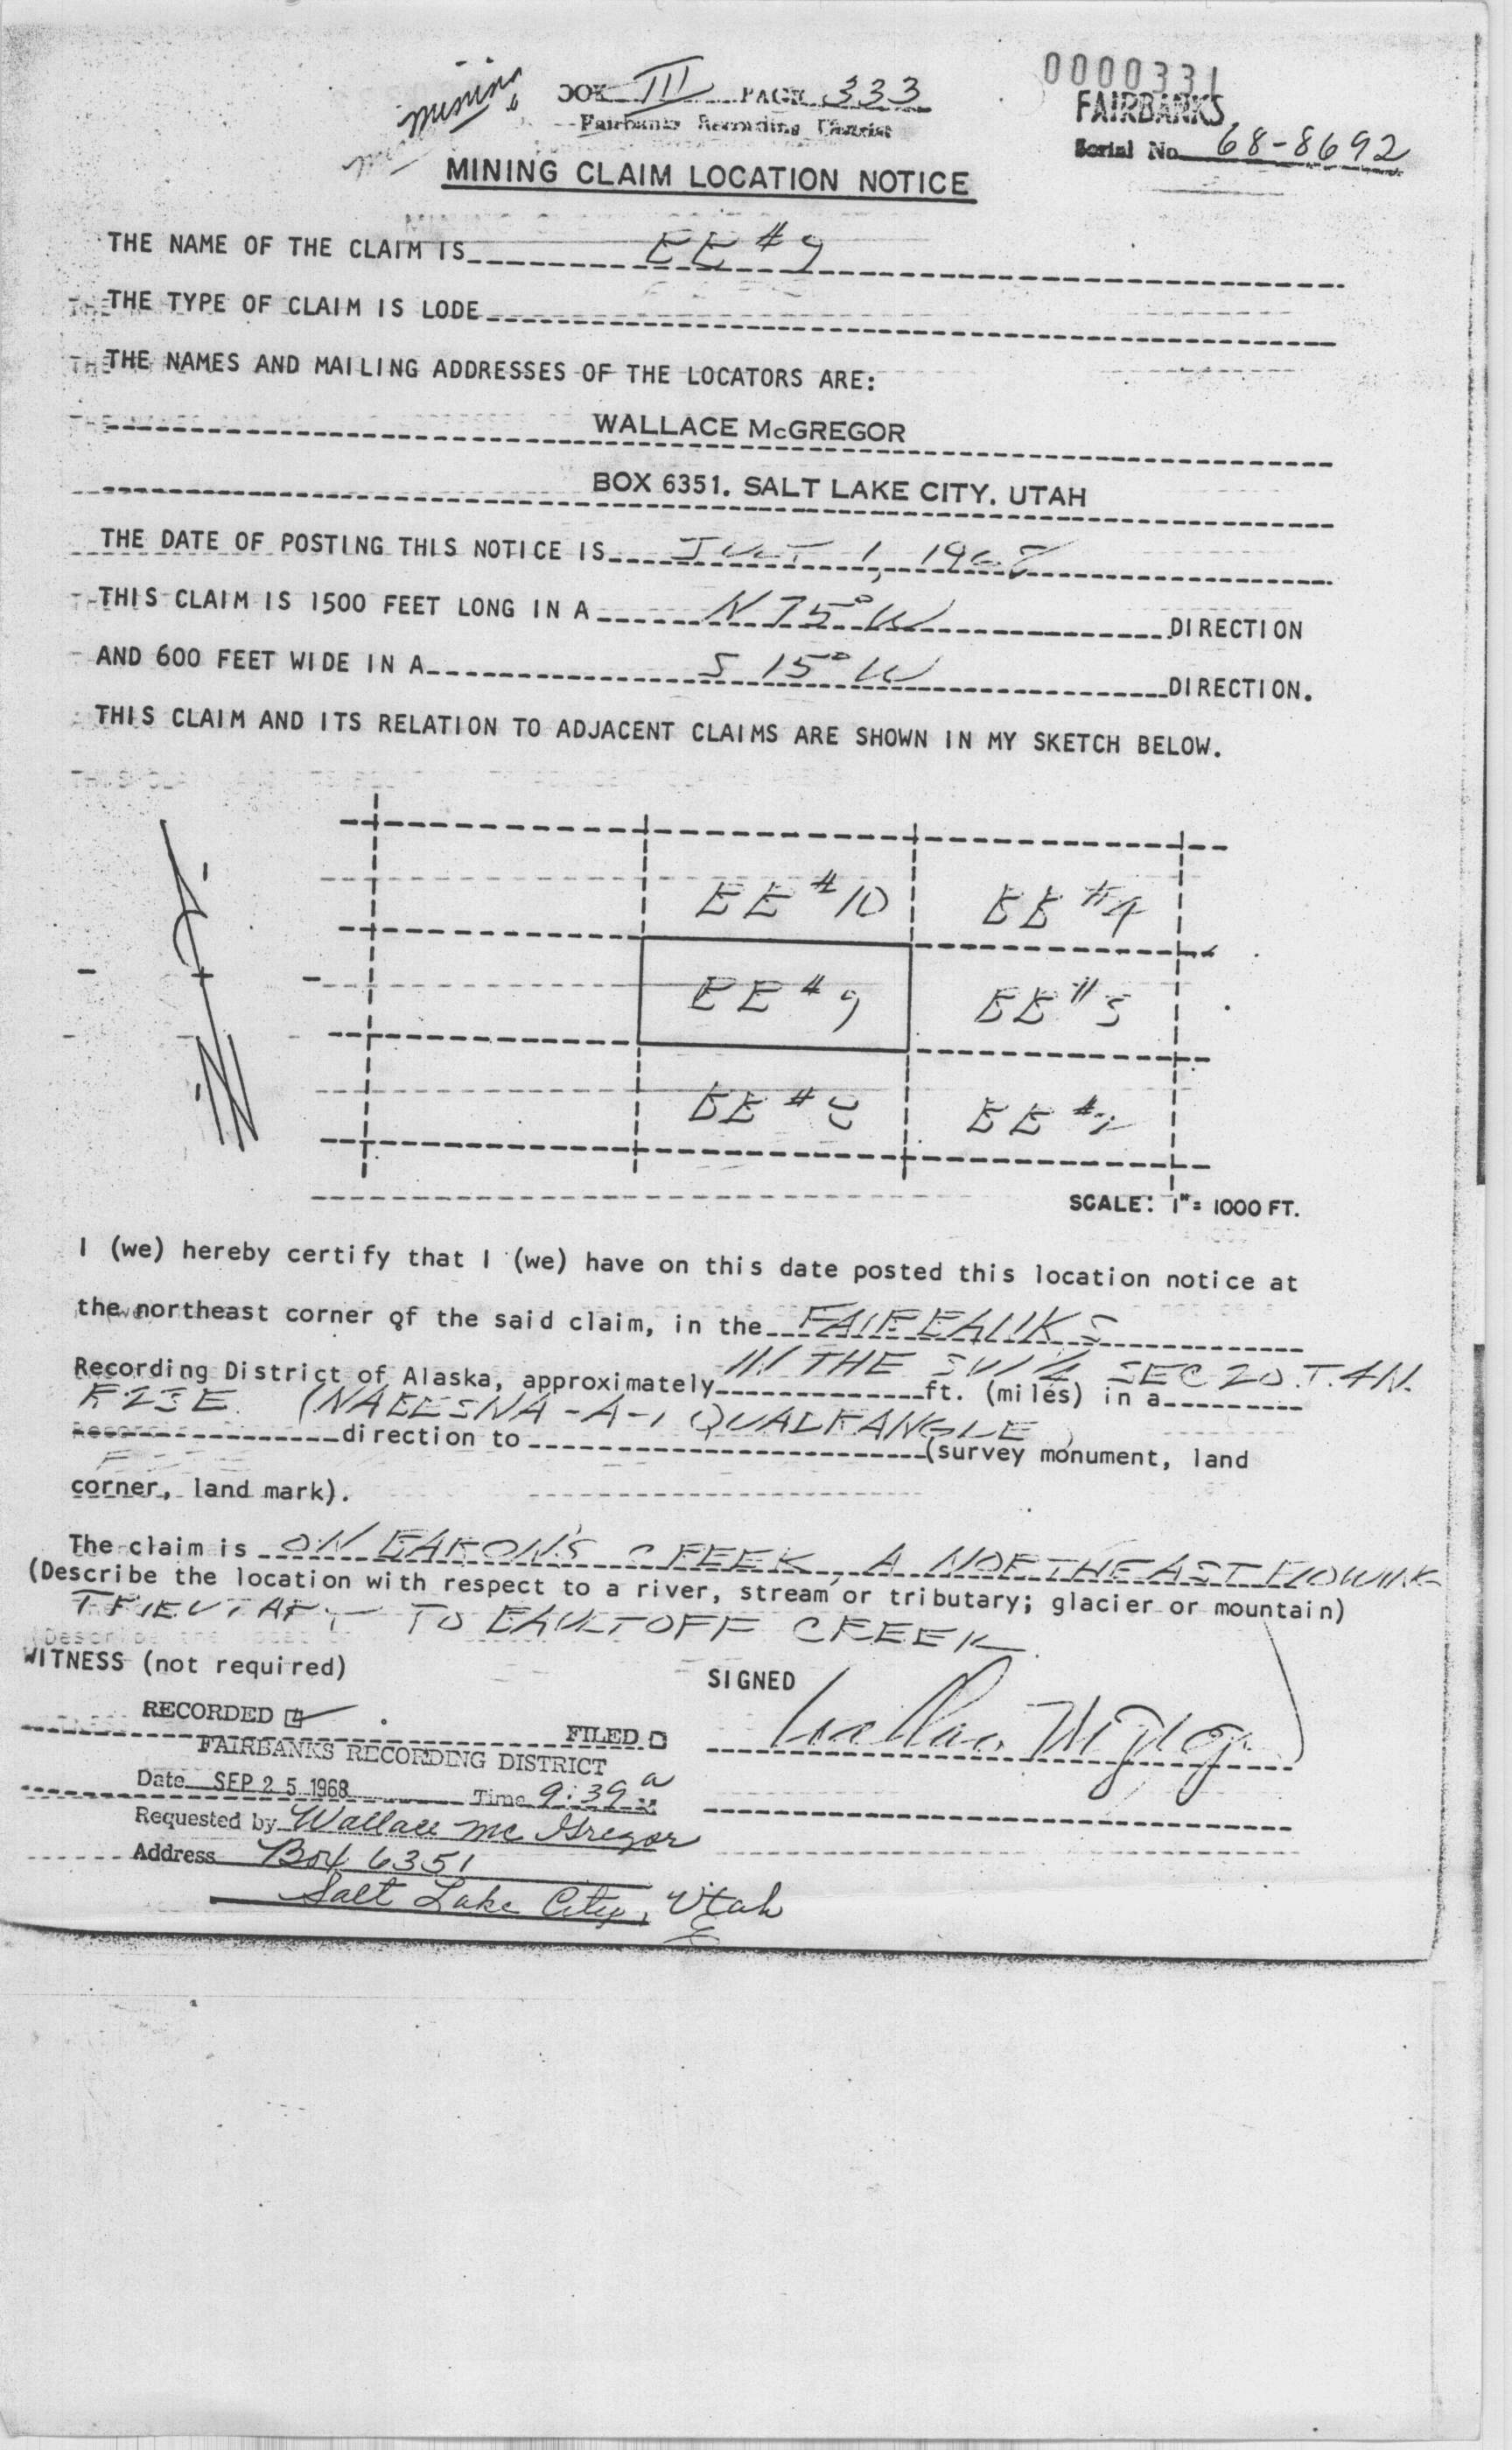 mining
OOK III PAGE 333
0000331
FAIRBANKS
Fairbanks Recording District
Serial No. 68-8692
MINING CLAIM LOCATION NOTICE
THE NAME OF THE CLAIM IS EE #9
THE TYPE OF CLAIM IS LODE
THE NAMES AND MAILING ADDRESSES OF THE LOCATORS ARE:
WALLACE McGREGOR
BOX 6351, SALT LAKE CITY, UTAH
THE DATE OF POSTING THIS NOTICE IS JULY 1, 1968
THIS CLAIM IS 1500 FEET LONG IN A N 75° W DIRECTION
AND 600 FEET WIDE IN A S 15° W DIRECTION.
THIS CLAIM AND ITS RELATION TO ADJACENT CLAIMS ARE SHOWN IN MY SKETCH BELOW.
EE #10 EE #4
EE #9
EE #8
N
SCALE: 1"= 1000 FT.
I (we) hereby certify that I (we) have on this date posted this location notice at
the northeast corner of the said claim, in the FAIRBANKS
Recording District of Alaska, approximately IN THE SW 1/4 SEC 20 T. 4N. ft. (miles) in a
R23E (NABESNA-A-1 QUADRANGLE)
direction to (survey monument, land
corner, land mark).
The claim is ON BARON'S CREEK, A NORTHEAST FLOWING
(Describe the location with respect to a river, stream or tributary; glacier or mountain)
TRIBUTARY TO BAULTOFF CREEK
WITNESS (not required) SIGNED
RECORDED FILED
Wallace McGregor
FAIRBANKS RECORDING DISTRICT
Date SEP 25 1968 Time 9:39 a M
Requested by Wallace Mc Gregor
Address Box 6351
Salt Lake City, Utah